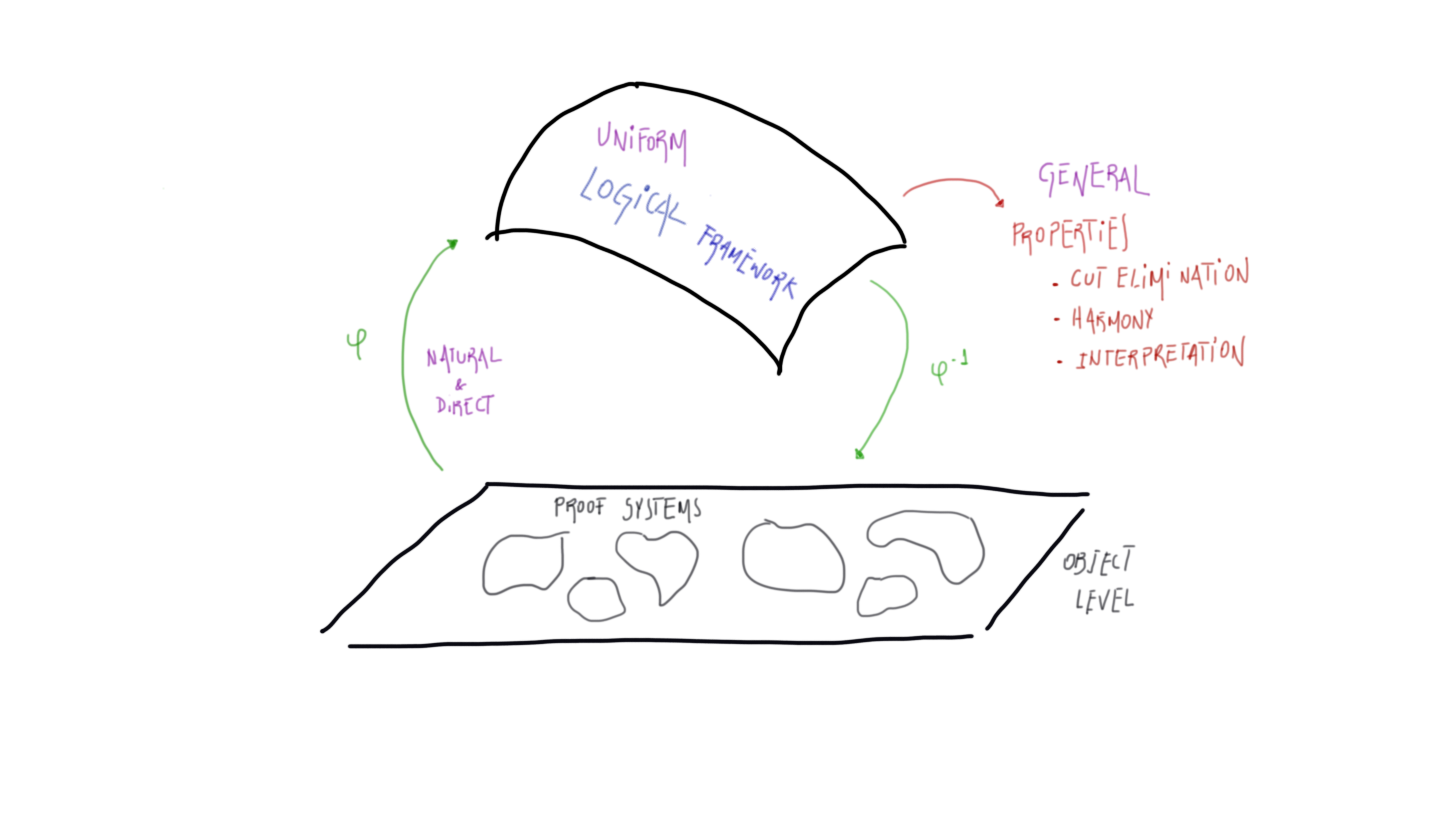 UNIFORM
LOGICAL FRAMEWORK
GENERAL
PROPERTIES
- CUT ELIMINATION
- HARMONY
- INTERPRETATION
φ
NATURAL
&
DIRECT
φ⁻¹
PROOF SYSTEMS
OBJECT
LEVEL